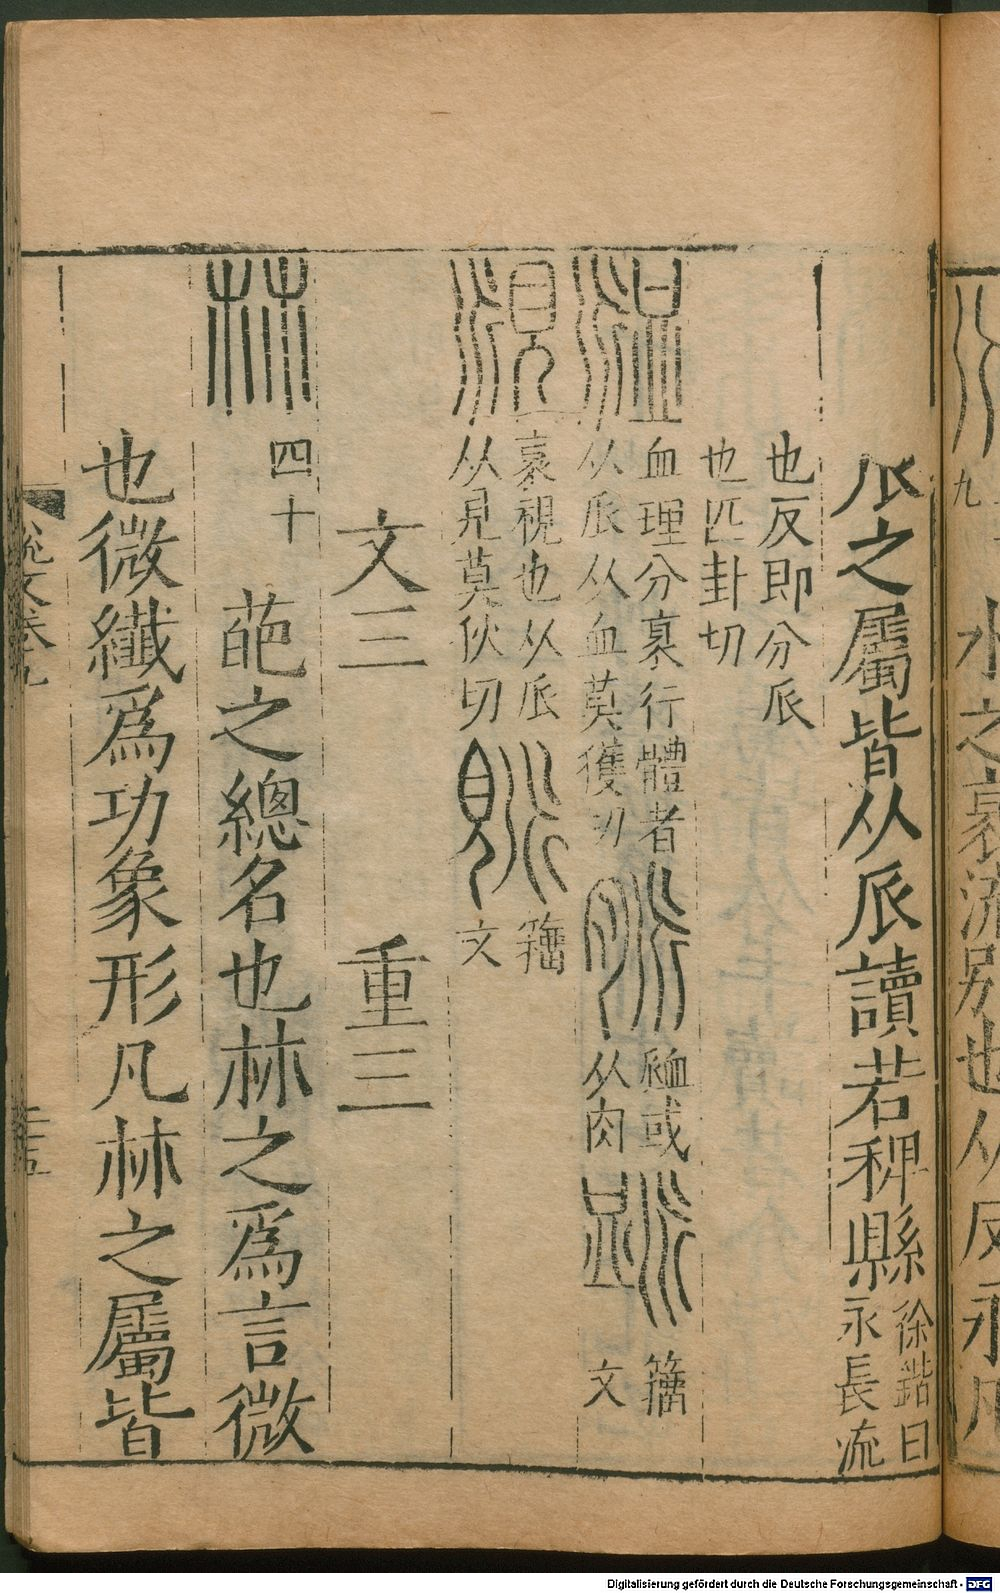 水之衺流別也从反永凡
𠂢之屬皆从𠂢讀若稗縣徐鍇曰永長流
也反即分𠂢
也匹卦切
血理分衺行體者
从𠂢从血莫獲切
衇或
从肉
籒
文
衺視也从𠂢
从見莫狄切
籒
文
文三 重三
𣏟 四十 葩之總名也𣏟之爲言微
也微纖爲功象形凡𣏟之屬皆
說文卷九
Digitalisierung gefördert durch die Deutsche Forschungsgemeinschaft - DFG